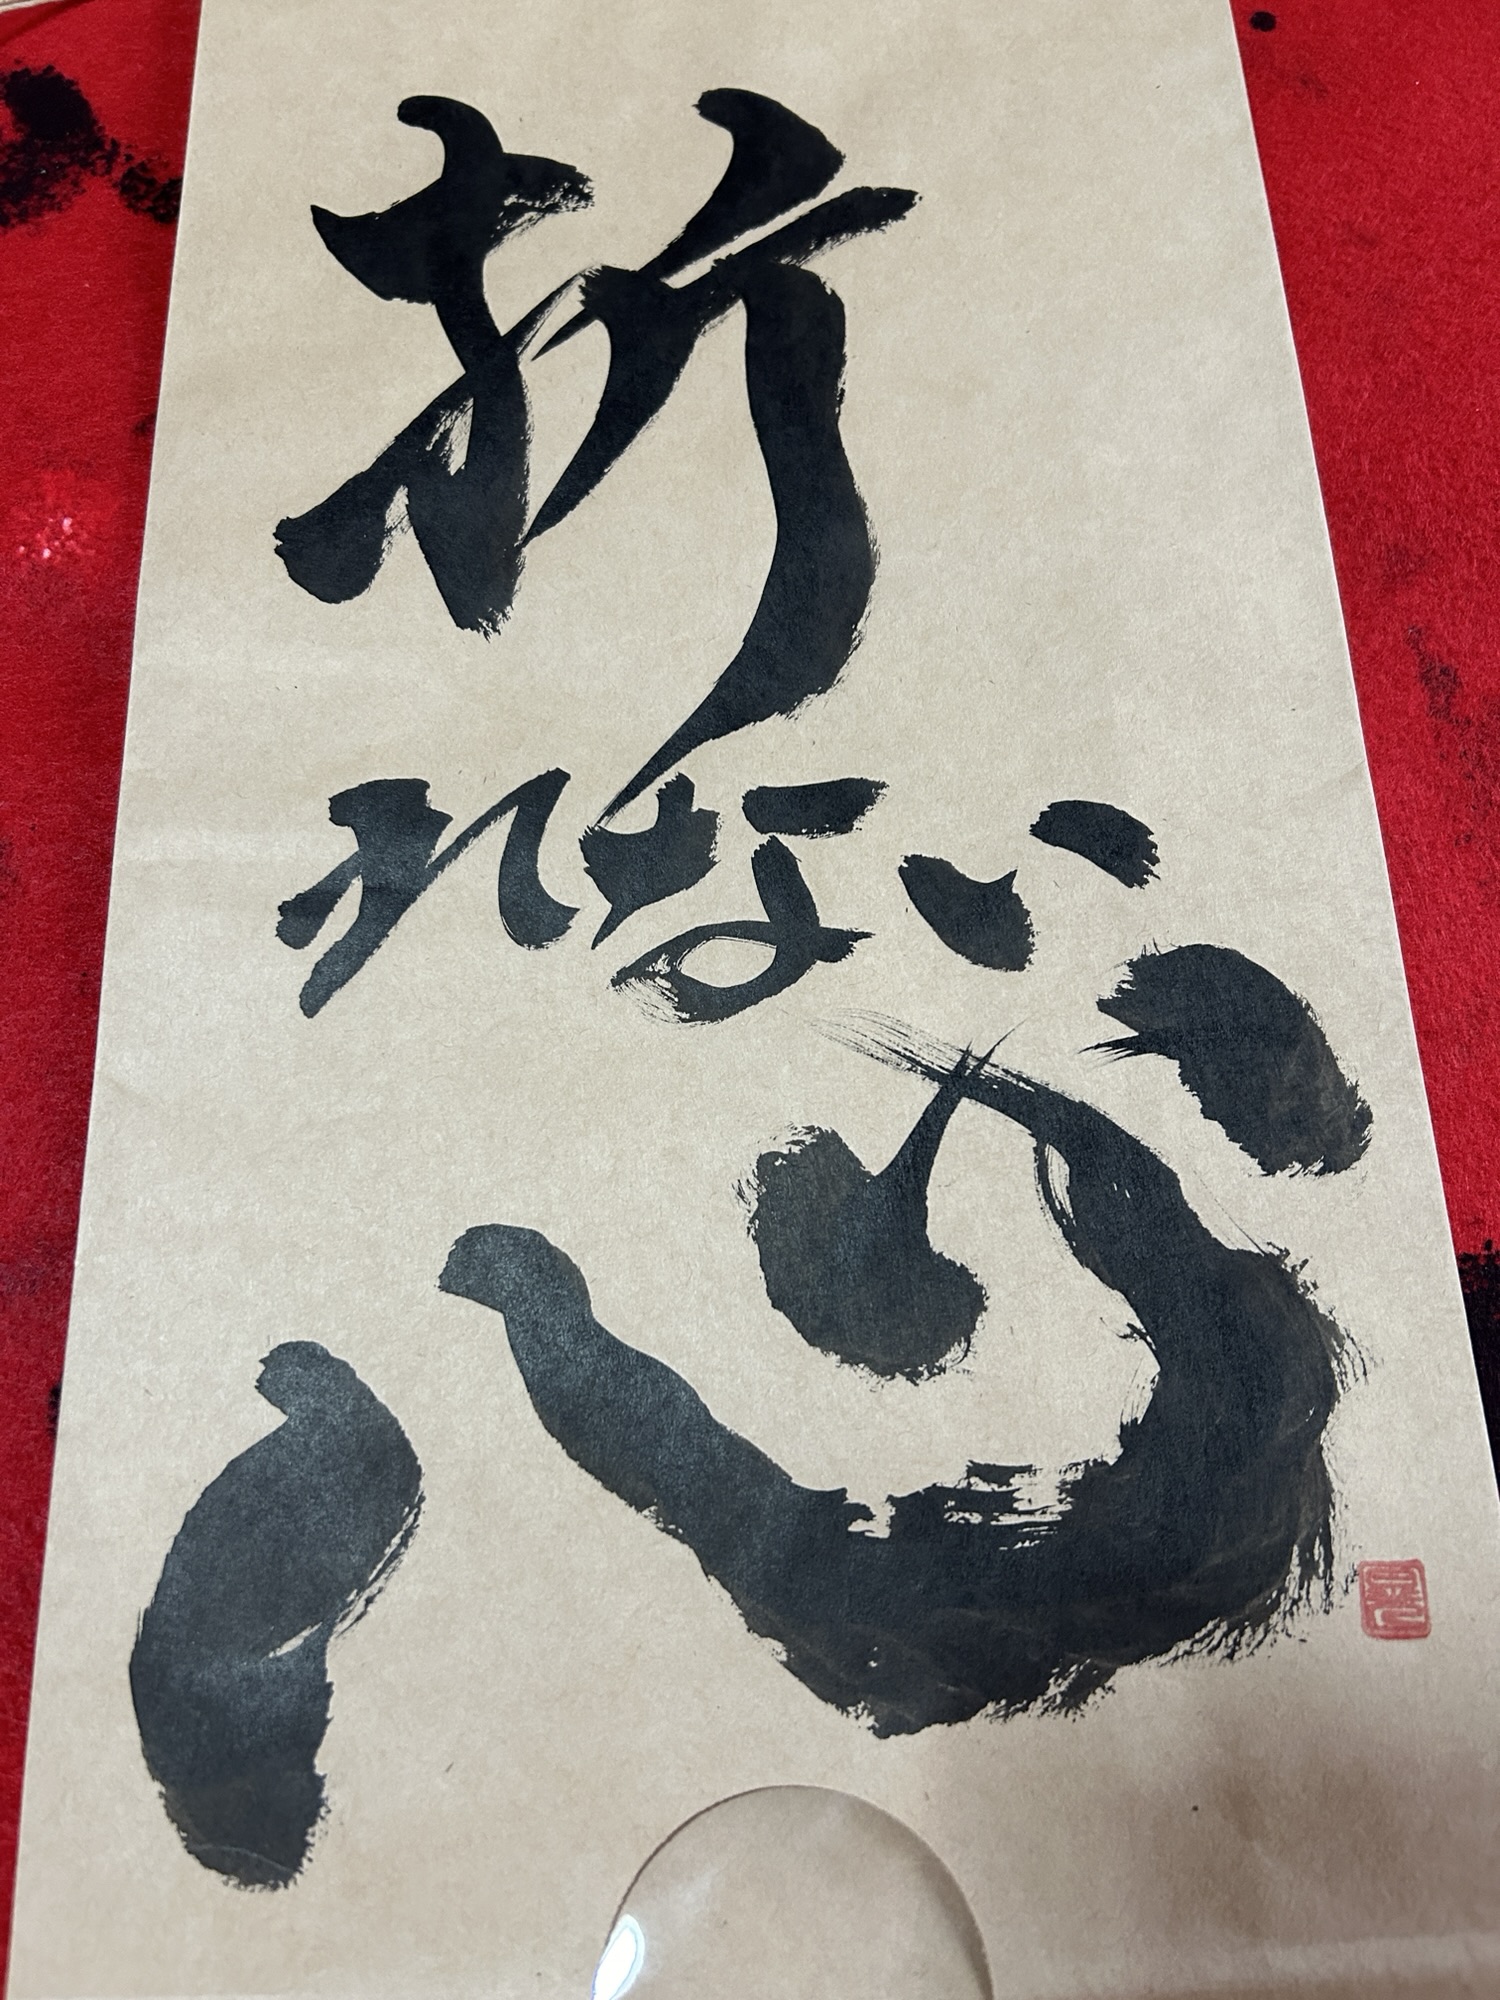 折
れない
心